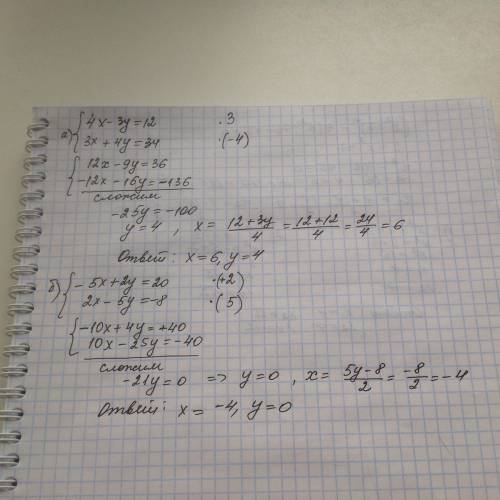 а) { 4x - 3y = 12   · 3
3x + 4y = 34   · (-4)
{ 12x - 9y = 36
-12x - 16y = -136
сложим
-25y = -100
y = 4 , x = (12 + 3y)/4 = (12 + 12)/4 = 24/4 = 6
Ответ: x = 6, y = 4
б) { -5x + 2y = 20   · (+2)
2x - 5y = -8   · (5)
{ -10x + 4y = +40
10x - 25y = -40
сложим
-21y = 0 => y = 0 , x = (5y - 8)/2 = -8/2 = -4
Ответ: x = -4, y = 0